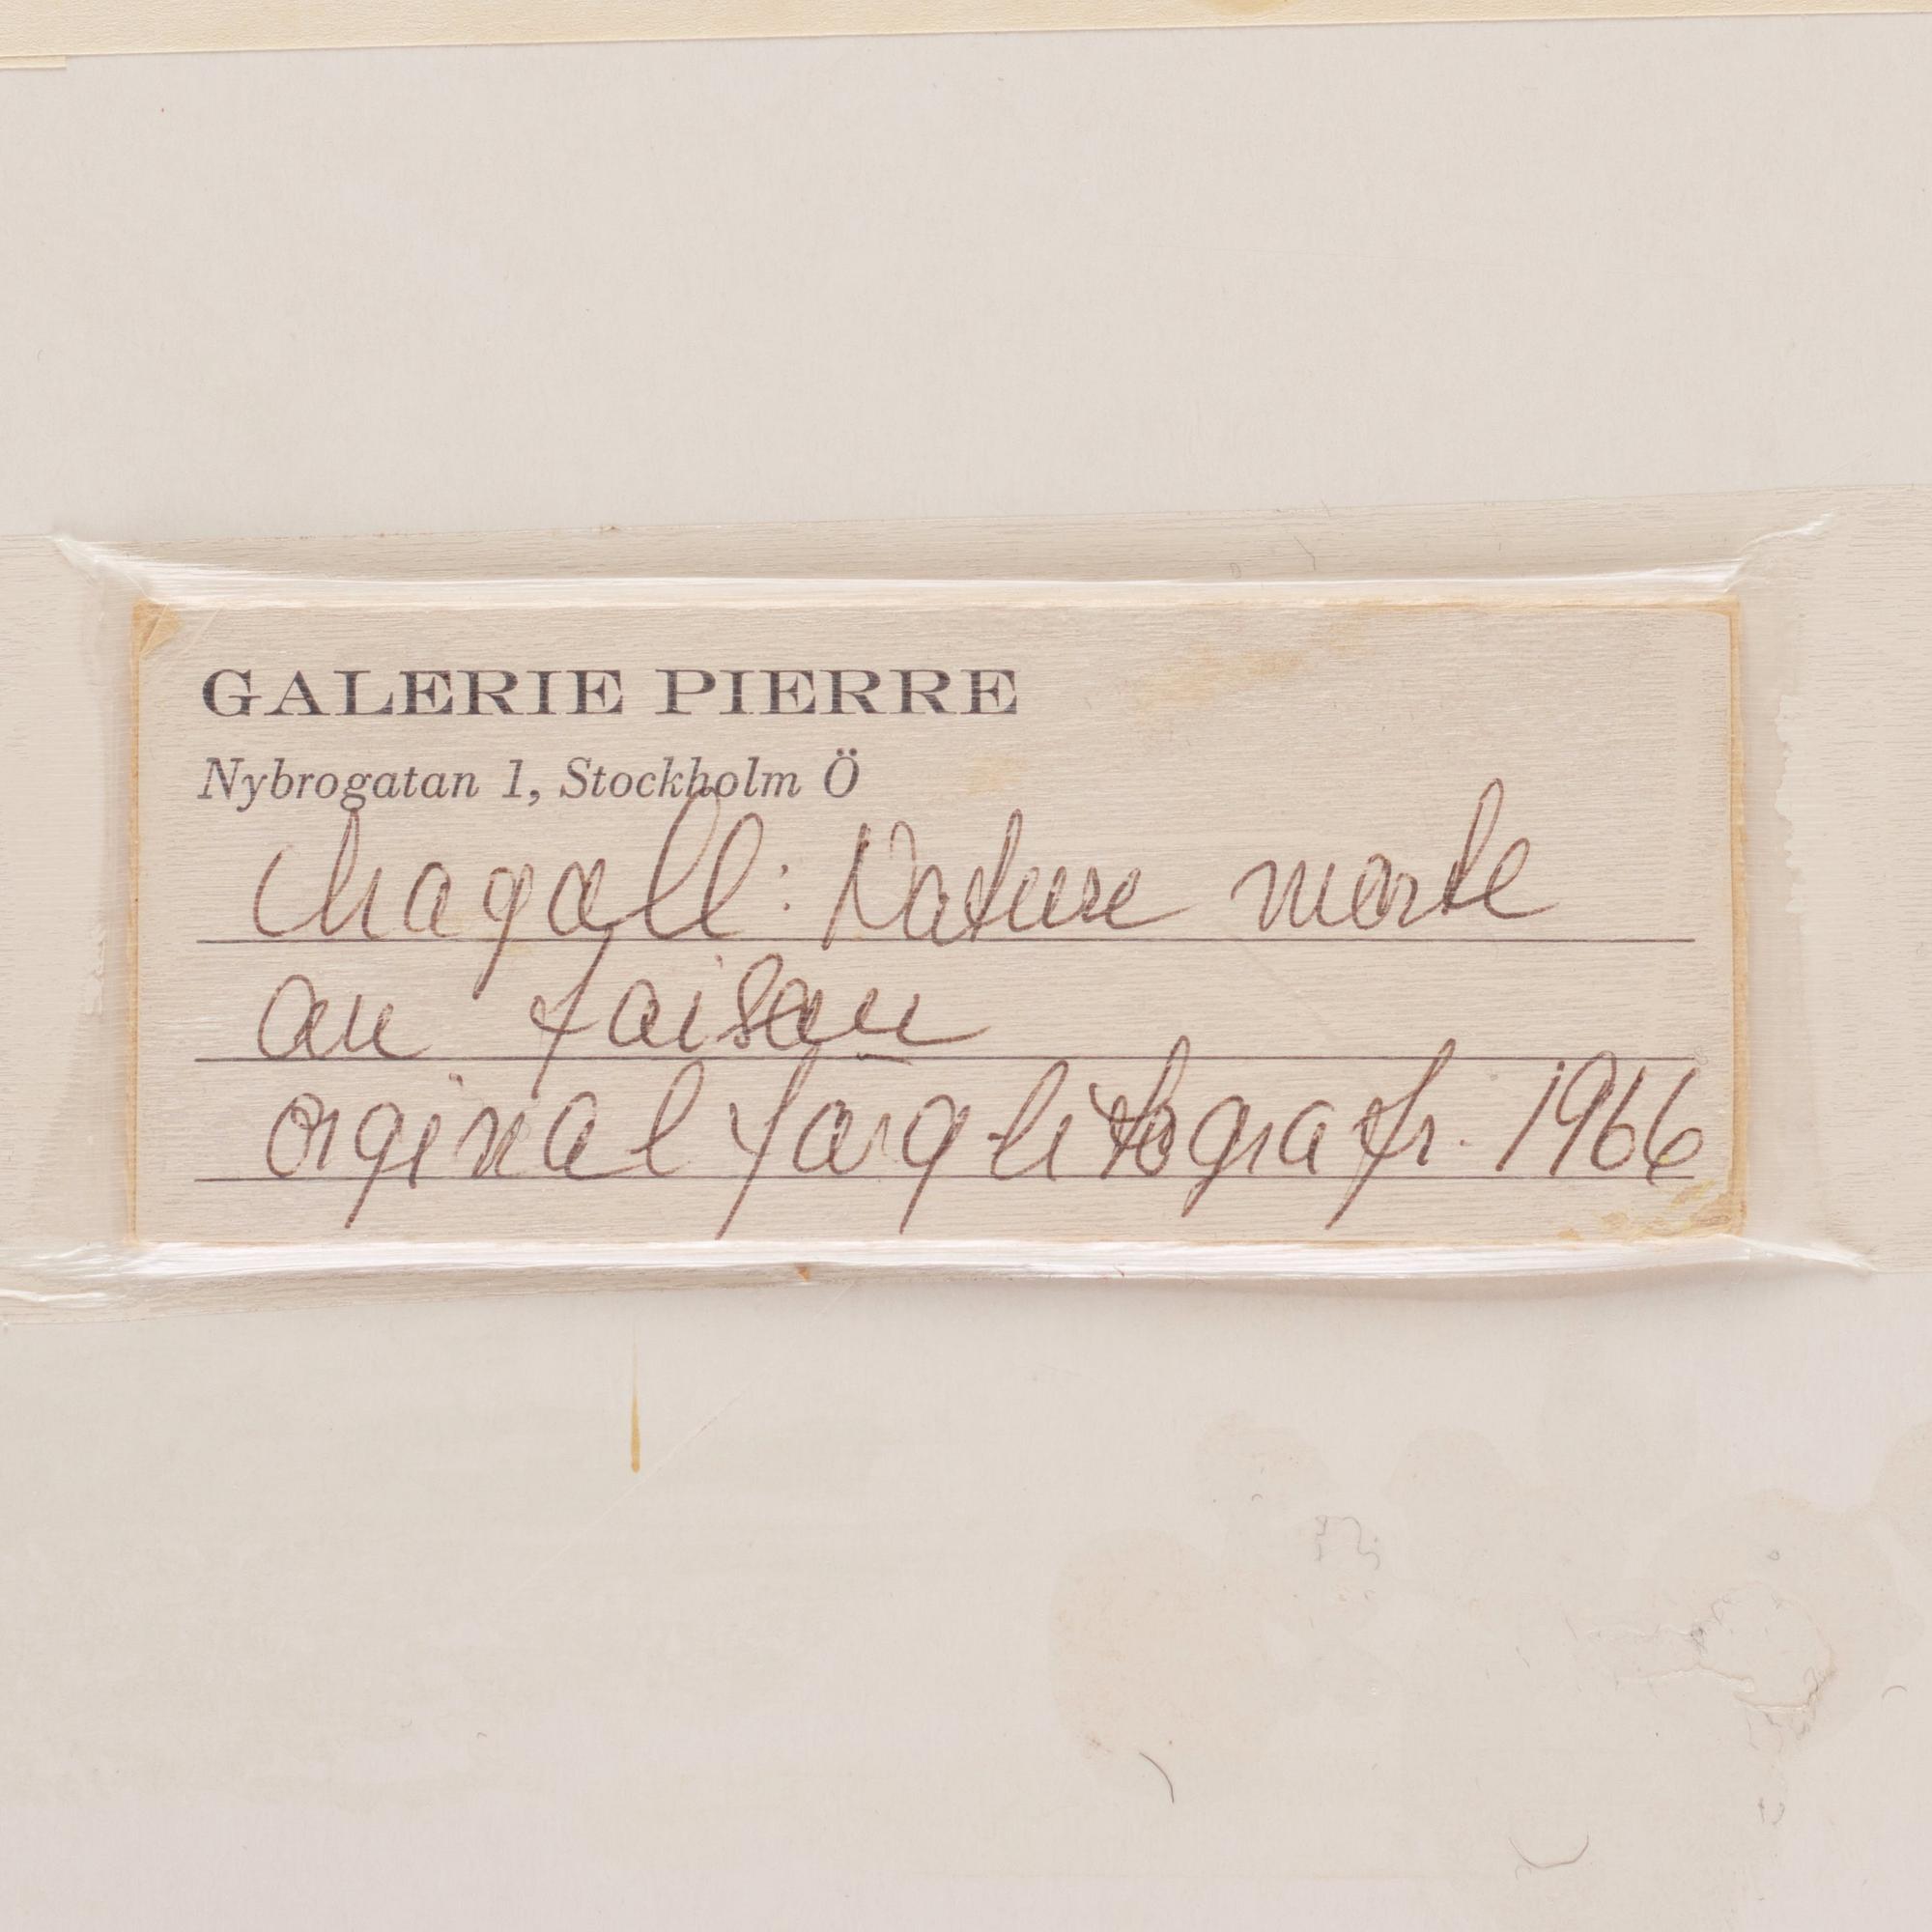 GALERIE PIERRE
Nybrogatan 1, Stockholm Ö
Chagall: Nature morte
au faisan
orginal färglitografi fr. 1966